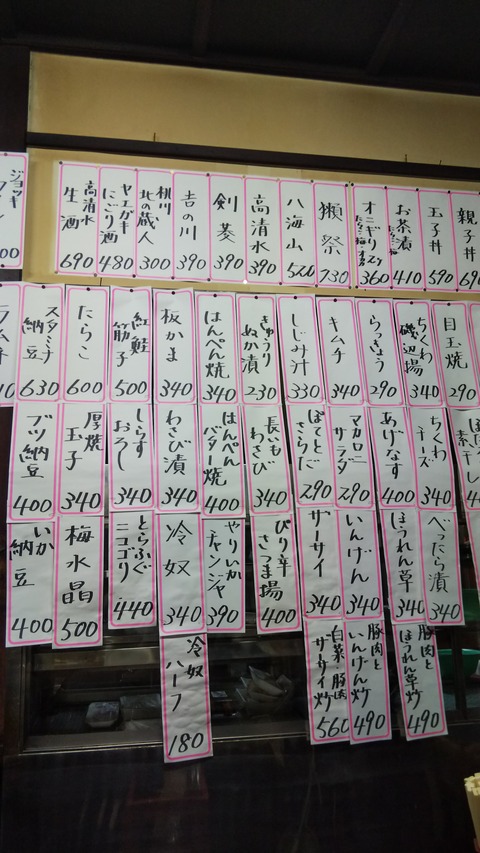 親子丼 690
玉子丼 590
お茶漬 410
オニギリ 360
獺祭 730
八海山 520
高清水 390
剣菱 390
吉の川 390
桃川 北の蔵人 300
ヤエガキ にごり酒 480
高清水 生酒 690
ジョッキ
目玉焼 290
ちくわ 磯辺揚 340
らっきょう 290
キムチ 340
しじみ汁 330
きゅうり ぬか漬 230
はんぺん焼 340
板かま 340
紅鮭 筋子 500
たらこ 600
スタミナ 納豆 630
素干し
ちくわ チーズ 340
あげなす 400
マカロニ サラダ 290
ぽてと さらだ 290
長いも わさび 340
はんぺん バター焼 400
わさび漬 340
しらす おろし 340
厚焼 玉子 340
ブツ納豆 400
べったら漬 340
ほうれん草 340
いんげん 340
ザーサイ 340
ぴり辛 さつま揚 400
やりいか チャンジャ 390
冷奴 340
とらふぐ ニコゴリ 440
梅水晶 500
いか 納豆 400
豚肉と ほうれん草炒 490
豚肉と いんげん炒 490
白菜・豚肉 ザーサイ炒 560
冷奴 ハーフ 180